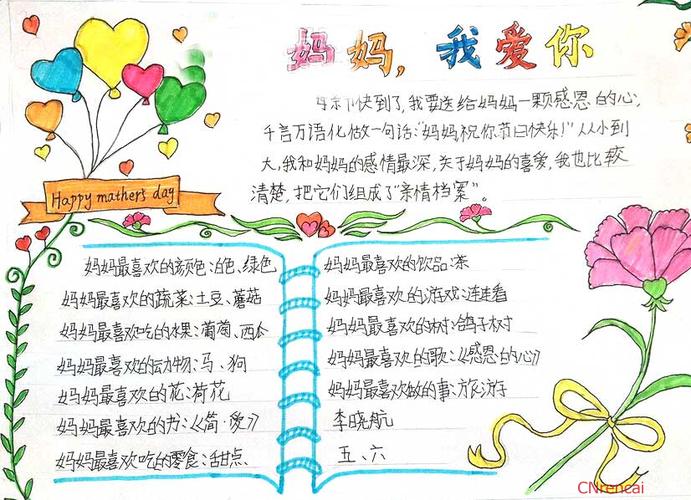 妈妈，我爱你
母亲节快到了，我要送给妈妈一颗感恩的心，
千言万语化做一句话："妈妈祝你节日快乐！"从小到
大，我和妈妈的感情最深，关于妈妈的喜爱，我也比较
清楚，把它们组成了"亲情档案"。
Happy mathers day
妈妈最喜欢的颜色：白色、绿色
妈妈最喜欢的蔬菜：土豆、蘑菇
妈妈最喜欢吃的水果：葡萄、西瓜
妈妈最喜欢的动物：马、狗
妈妈最喜欢的花：荷花
妈妈最喜欢的书：《简·爱》
妈妈最喜欢吃的零食：甜点
妈妈最喜欢的饮品：茶
妈妈最喜欢的游戏：连连看
妈妈最喜欢的树：鸽子树
妈妈最喜欢的歌：《感恩的心》
妈妈最喜欢做的事：旅游
李晓航
五、六
CNrencai